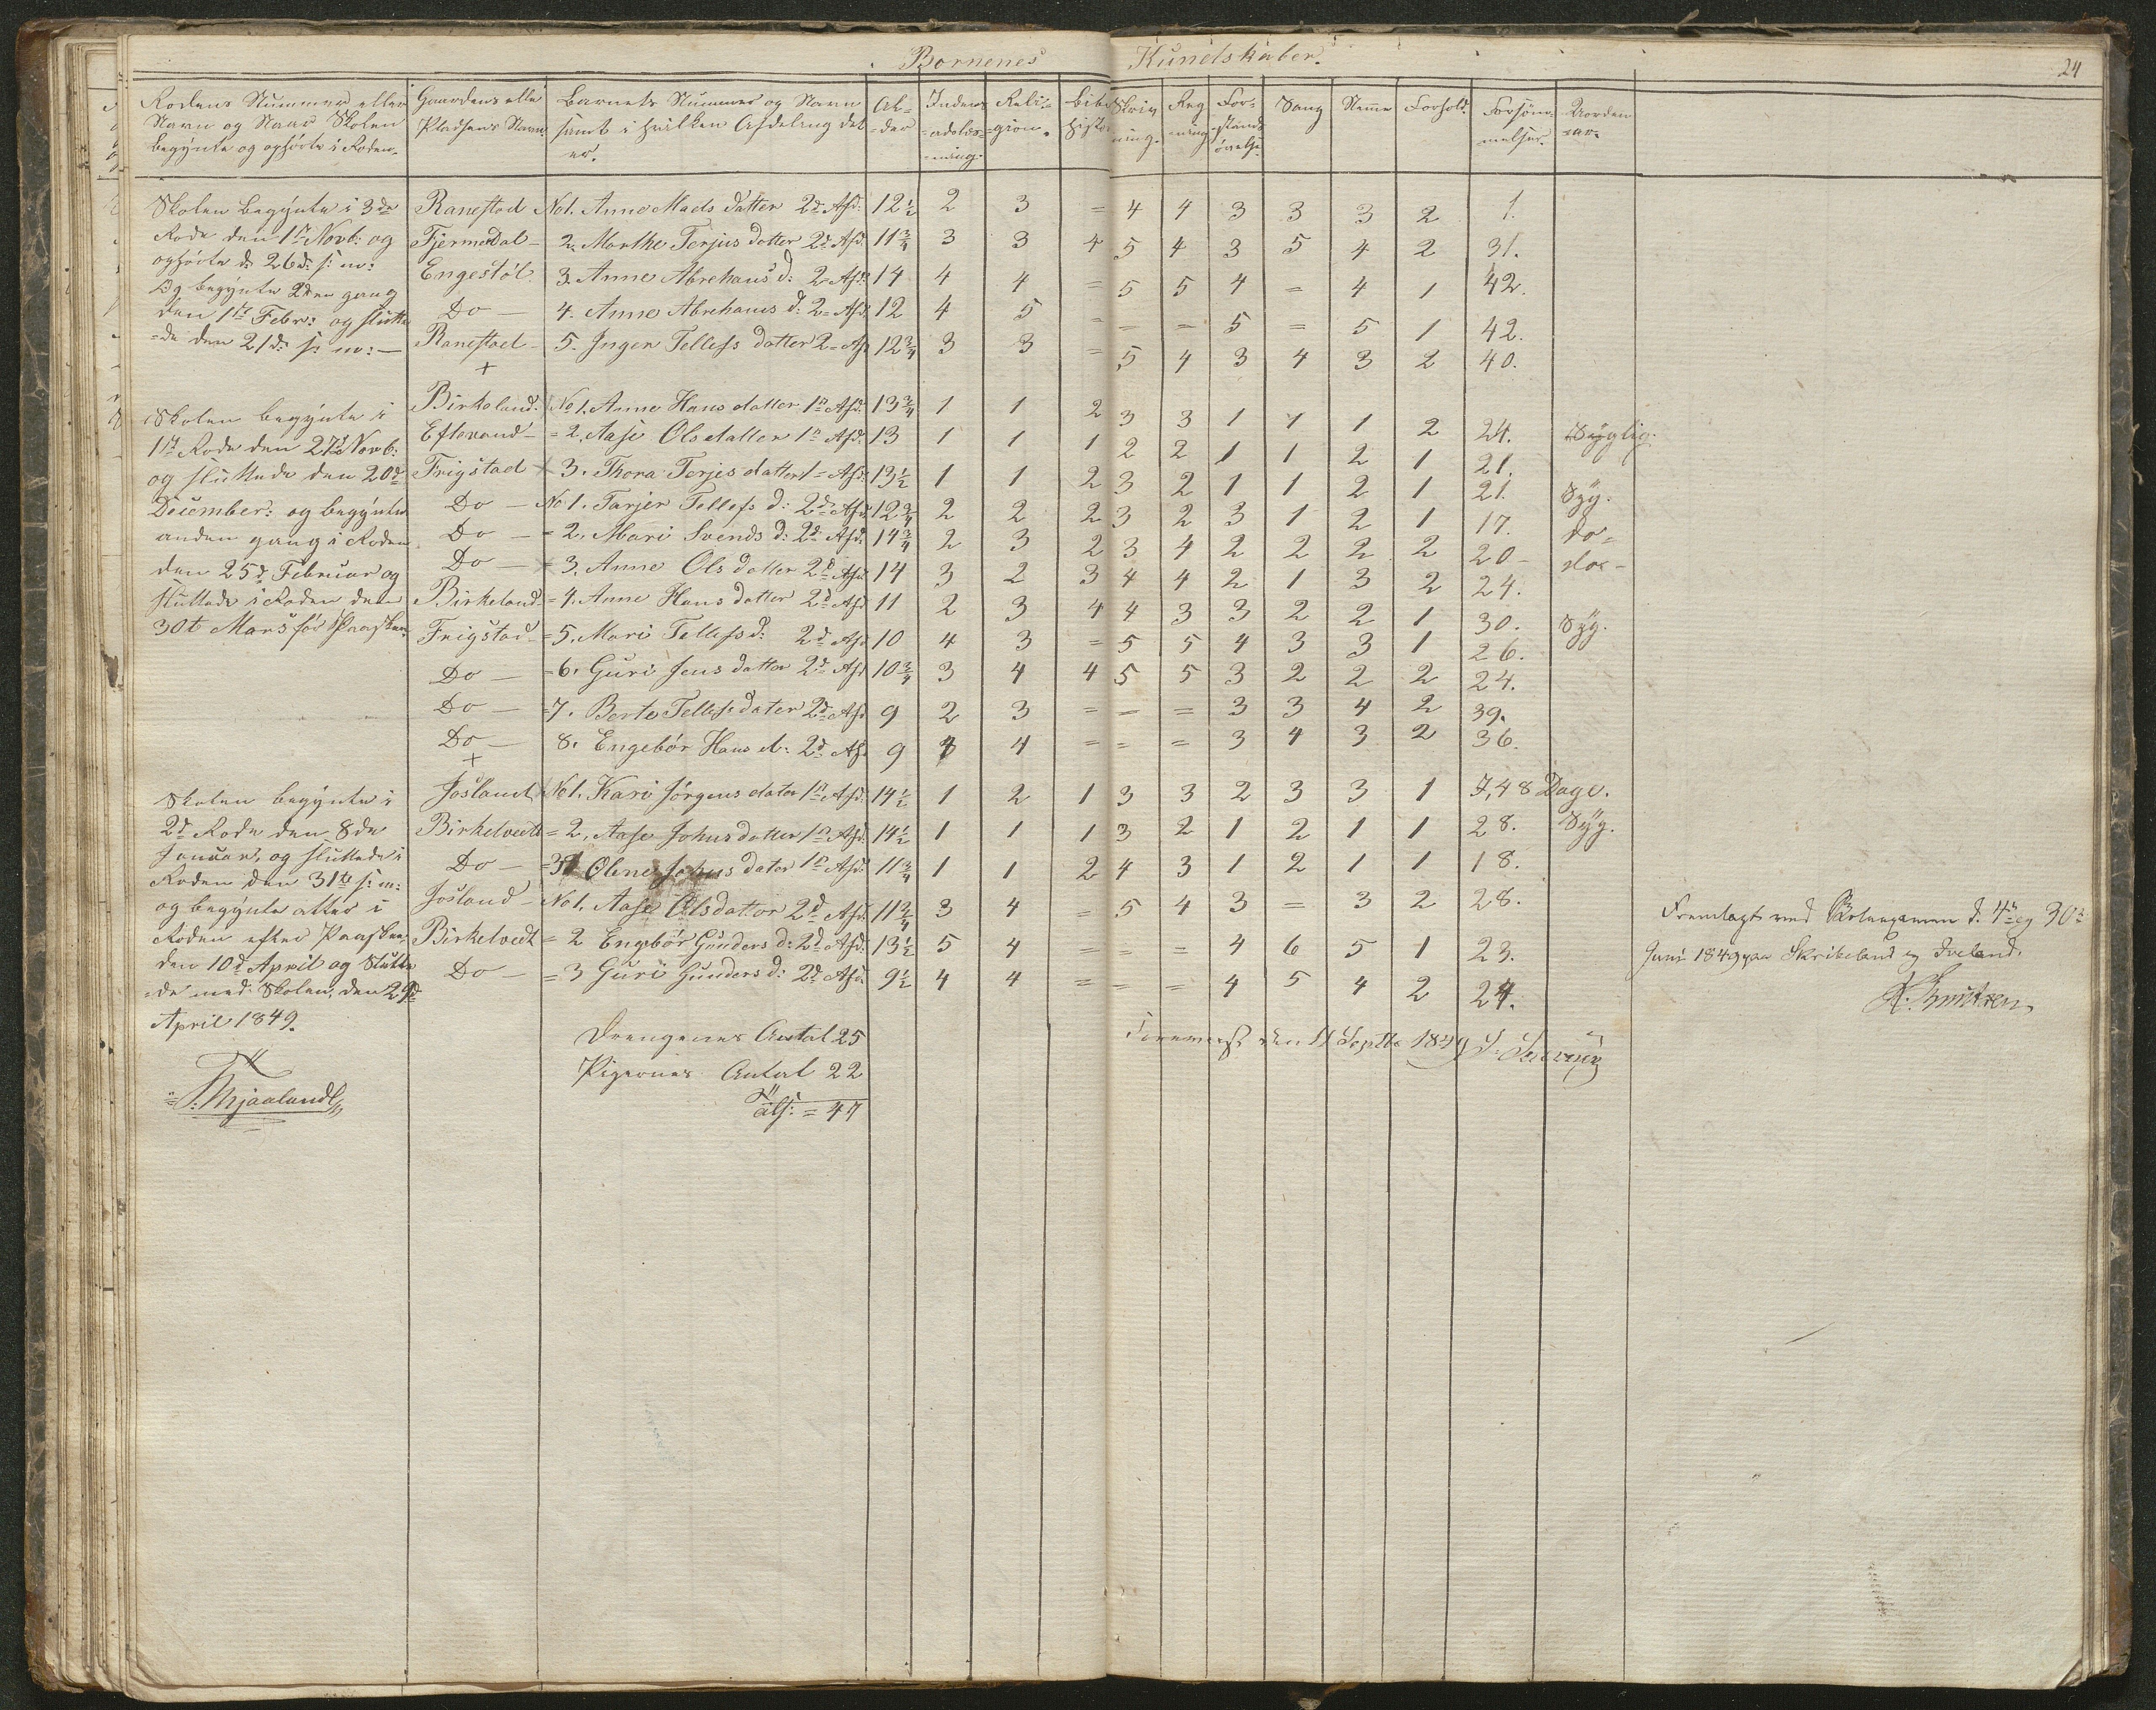 Børnenes Kundskaber.
24
Rodens Nummer eller Navn og Naar Skolen begynte og ophørte i Roden.
Gaardens eller Pladsens Navn
Barnets Nummer og Navn samt i hvilken Afdeling det er.
Al-der
Indenadslæs-ning.
Reli-gion.
Bibel Histo
Skriv ning.
Reg ning
For-stands øvelse
Sang
Nemme
Forhold.
Forsøm-melser.
Aarsa
Skolen begynte i 3de
Rode den 1te Novb: og
ophørte d: 26d: s: m:
Og begynte 2den gang
den 1te Febr: og slutte
=de den 21d: s: m: —
Ranestad No1. Anne Mads datter 2d Afd: 12½ 2 3 = 4 4 3 3 3 2 1.
Fjermedal - 2. Marthe Terjus datter 2d Afd. 11¾ 3 3 4 5 4 3 5 4 2 31.
Engestøl 3. Anne Abrehans d: 2= Afd: 14 4 4 = 5 5 4 = 4 1 42.
Do — 4. Anne Abrehams d: 2= Afd: 12 4 5 = = = 5 = 5 1 42.
Ranestad - 5. Inger Tellefs datter 2= Afd 12¾ 3 3 = 5 4 3 4 3 2 40.
+
Skolen begynte i
1te Rode den 27d Novb:
og sluttede den 20d
December: og begynte
anden gang i Roden
den 25d Februar og
sluttede i Roden den
30t Mars før Paasken.
Birkeland. No1. Anne Hans datter 1n Afd. 13¾ 1 1 2 3 3 1 1 1 2 24. Syglig.
Eftevand - = 2. Aase Ols datter 1n Afd. 13 1 1 1 2 2 1 1 2 1 21.
Frigstad × 3. Thora Terjes datter 1= Afd: 13½ 1 1 2 3 2 1 1 2 1 21. Syg.
Do — No1. Tarjer Tellefs d: 2d Afd. 12¾ 2 2 2 3 2 3 1 2 1 17. do=
Do — = 2. Mari Svends d: 2d Afd: 14¾ 2 3 2 3 4 2 2 2 2 20- do=
Do — × 3. Anne Ols datter 2d Afd 14 3 2 3 4 4 2 1 3 2 24.
Birkeland = 4. Anne Hans datter 2d Afd 11 2 3 4 4 3 3 2 2 1 30. Syg.
Frigstad = 5. Mari Tellefs d: 2d Afd 10 4 3 = 5 5 4 3 3 1 26.
Do — = 6. Guri Jens datter 2d Afd 10¾ 3 4 4 5 5 3 2 2 2 24.
Do — = 7. Berte Tellefs dater 2d Afd 9 2 3 = = = 3 3 4 2 39.
Do — 8. Engebør Hans d: 2d Afd 9 4 = = = 3 4 3 2 36.
+
Skolen begynte i
2d Rode den 8de
Januar, og sluttede i
Roden den 31te s: m:
og begynte atter i
Roden efter Paasken,
den 10d April og Slutte
=de med Skolen, den 29d
April 1849.
Josland No1. Kari Jørgens dater 1n Afd. 14½ 1 2 1 3 3 2 3 3 1 48 Dage.
Birketveit = 2, Aase Johns datter 1n Afd. 14½ 1 1 1 3 2 1 2 1 1 28. Syg.
Do — = 3 Olene Johns dater 1n Afd. 11¾ 1 1 2 4 3 1 2 1 1 18.
Josland - No1. Aase Olsdatter 2d Afd. 11¾ 3 4 = 5 4 3 = 3 2 28.
Birketveit = 2 Engebør Gunders d: 2d Afd. 13½ 5 4 = = = 4 6 5 1 23.
Do — = 3 Guri Gunders d: 2d Afd. 9½ 4 4 = = = 4 5 4 2 24.
Drengenes Antal 25
Pigernes Antal 22
= 47
T. Mjaaland
Fremlagt ved Skoleexamen d. 4de og 30te
Juni 1849 paa Skribeland og
K. Knutzen
den 11 Septbr 1849